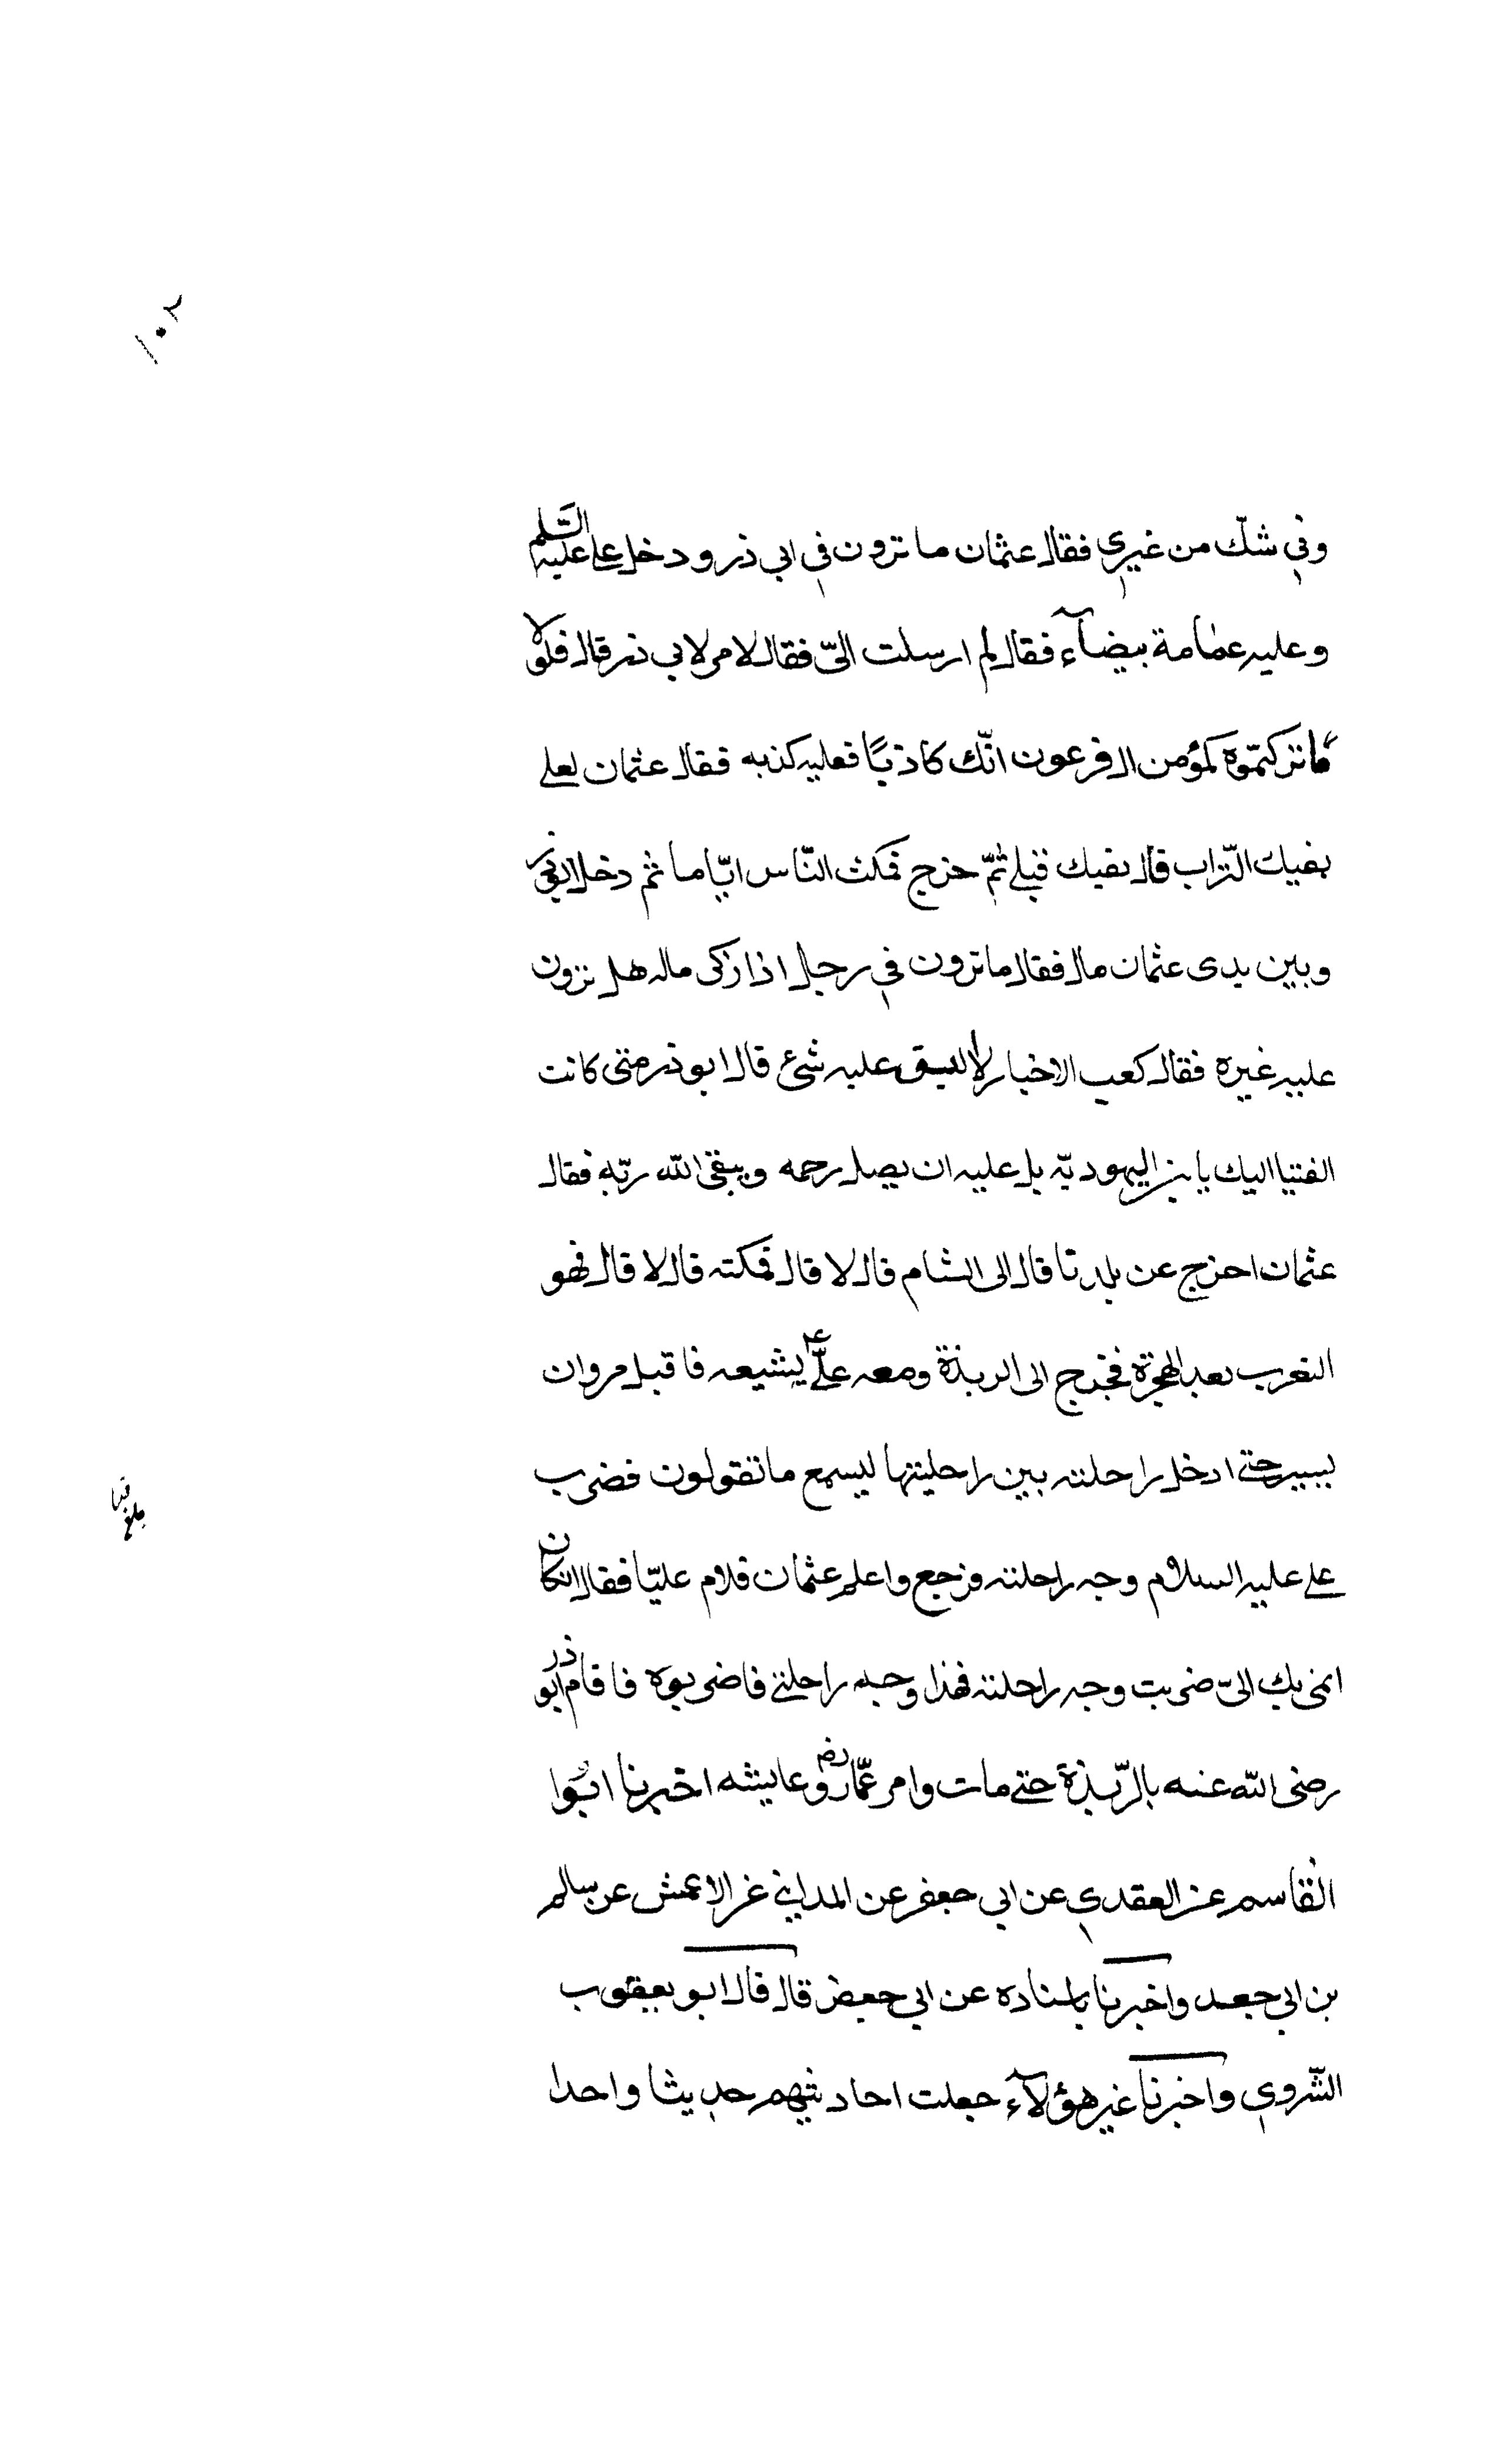 ١٠٢
وفي شكّ من غيري فقال عثمان ما ترون في ابي ذر ودخل علي عليه السّلم
وعليه عمامة بيضآء فقال لم ارسلت اليّ فقال لامر لابي ذر قال فلا
ما تركتموه كمؤمن ال فرعون انّك كاذبًا فعليه كذبه فقال عثمان لعلي
بفيك التّراب قال بفيك قبلي ثمّ خرج فمكث النّاس ايّاما ثم دخل ابو ذر
وبين يدى عثمان مال فقال ما ترون في رجل اذا زكى ماله هل ترون
عليه غيره فقال كعب الاخبار لا ليس عليه شئ قال ابو ذر متى كانت
الفتيا اليك يا بن اليهوديّه بل عليه ان يصل رحمه ويتقى الله ربّه فقال
عثمان اخرج عن بلدنا قال الى الشام قال لا قال فمكته قال لا قال فهو
التعرب بعد الهجرة فخرج الى الربذة ومعه علىّ ع يشيعه فاقبل مروان
يسير حتى ادخل راحلته بين راحليتها ليسمع ما تقولون فضرب
علي عليه السلام وجه راحلته فرجع واعلم عثمان فلام عليّا فقال ان كان
انى بك اليّ ضربت وجه راحلته فهذا وجه راحلتي فاضربوه فاقام ابو ذر
رضى الله عنه بالرّبذة حتى مات وامر عمّار رض وعايشه اخبرنا ابوا
القاسم عن العقدي عن ابي جعفر عن المدايني عن الاعمش عن سالم
بن ابي جعد واخبرنا باسناده عن ابي جعفر قال قال ابو يعقوب
السّروي واخبرنا غير هؤلآء جعلت احاديثهم حديثا واحدا